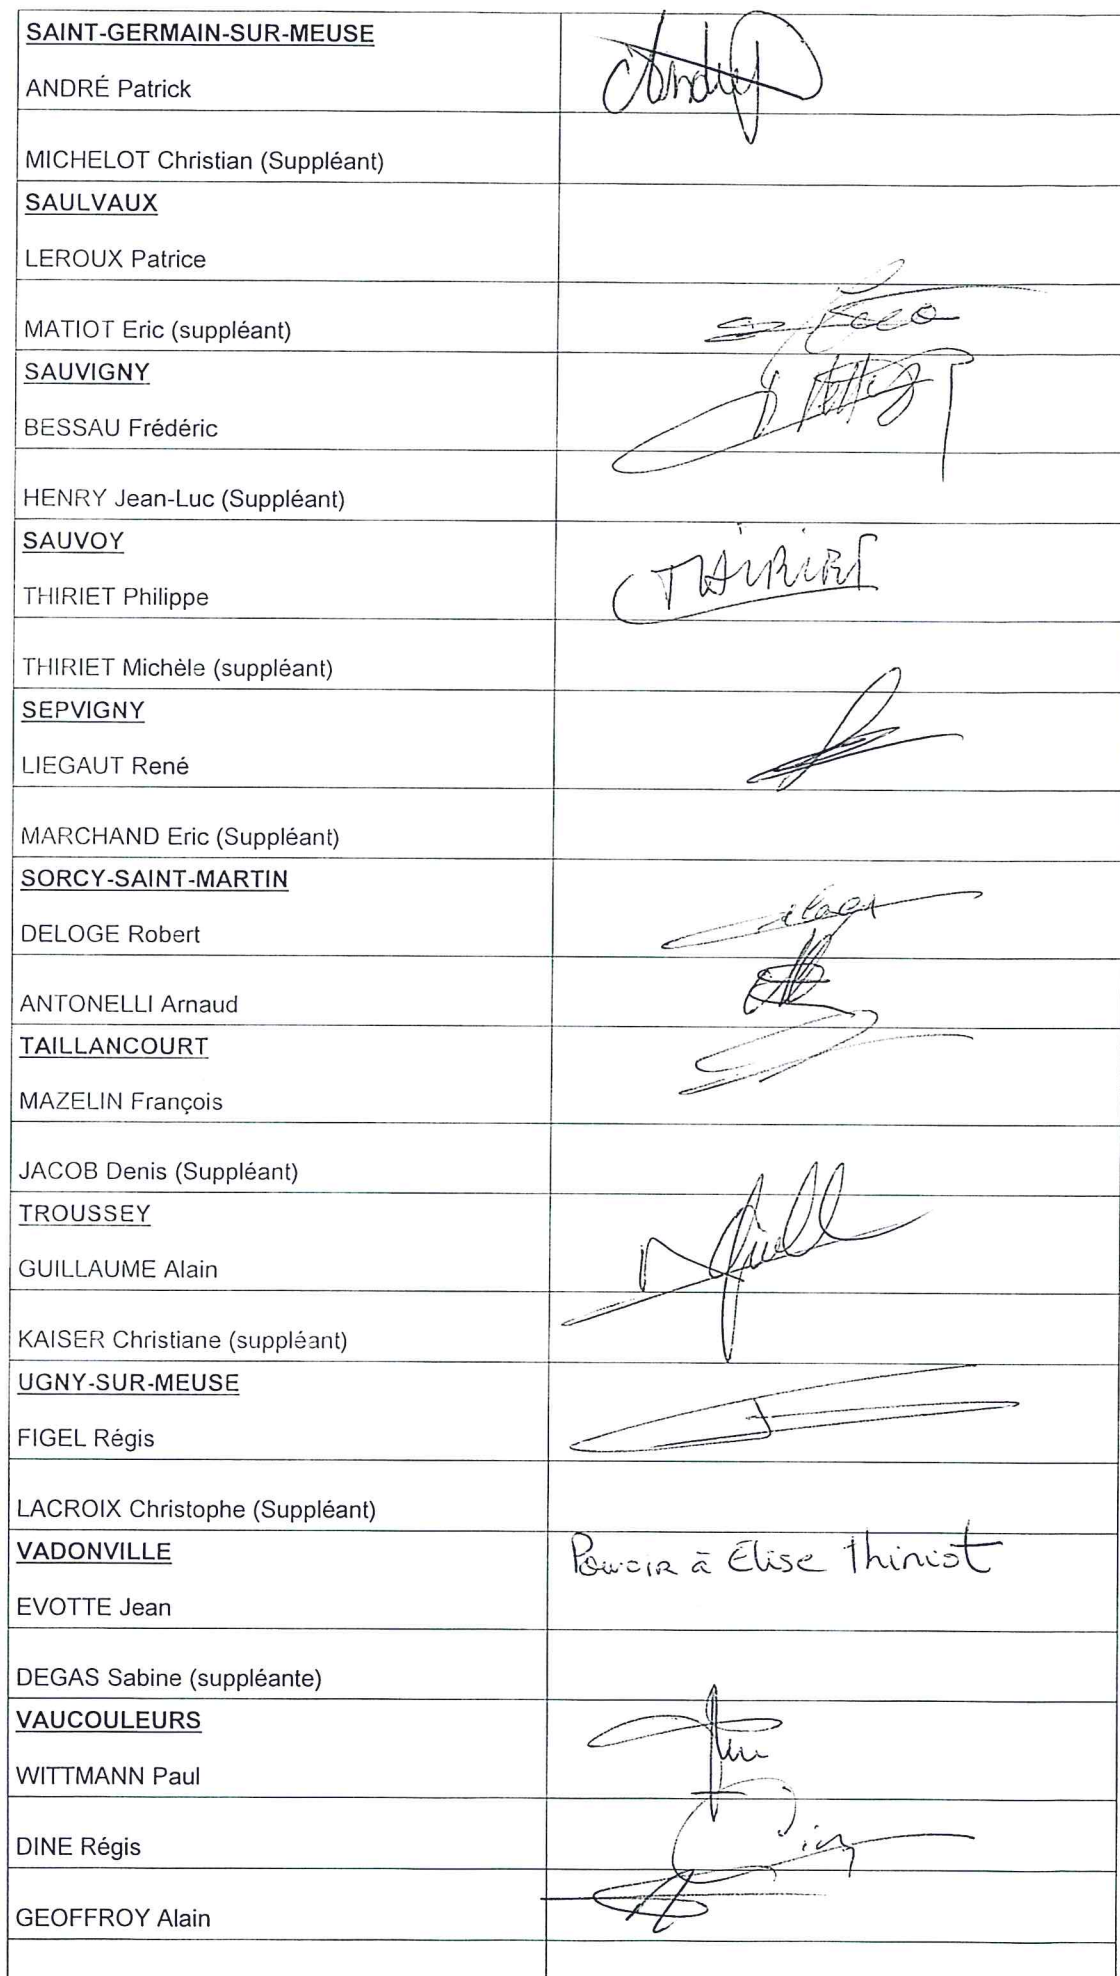 SAINT-GERMAIN-SUR-MEUSE
ANDRÉ Patrick
MICHELOT Christian (Suppléant)
SAULVAUX
LEROUX Patrice
MATIOT Eric (suppléant)
SAUVIGNY
BESSAU Frédéric
HENRY Jean-Luc (Suppléant)
SAUVOY
THIRIET Philippe
THIRIET
THIRIET Michèle (suppléant)
SEPVIGNY
LIEGAUT René
MARCHAND Eric (Suppléant)
SORCY-SAINT-MARTIN
DELOGE Robert
ANTONELLI Arnaud
TAILLANCOURT
MAZELIN François
JACOB Denis (Suppléant)
TROUSSEY
GUILLAUME Alain
KAISER Christiane (suppléant)
UGNY-SUR-MEUSE
FIGEL Régis
LACROIX Christophe (Suppléant)
VADONVILLE
Pouvoir à Elise Thiriot
EVOTTE Jean
DEGAS Sabine (suppléante)
VAUCOULEURS
WITTMANN Paul
DINE Régis
GEOFFROY Alain